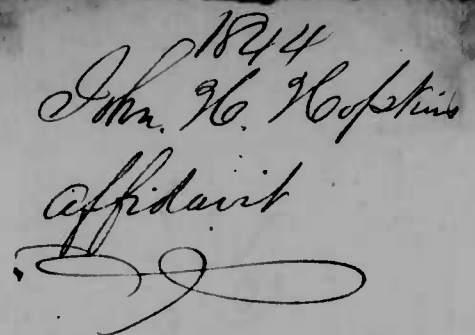 1844
John. H. Hopkins
affidavit